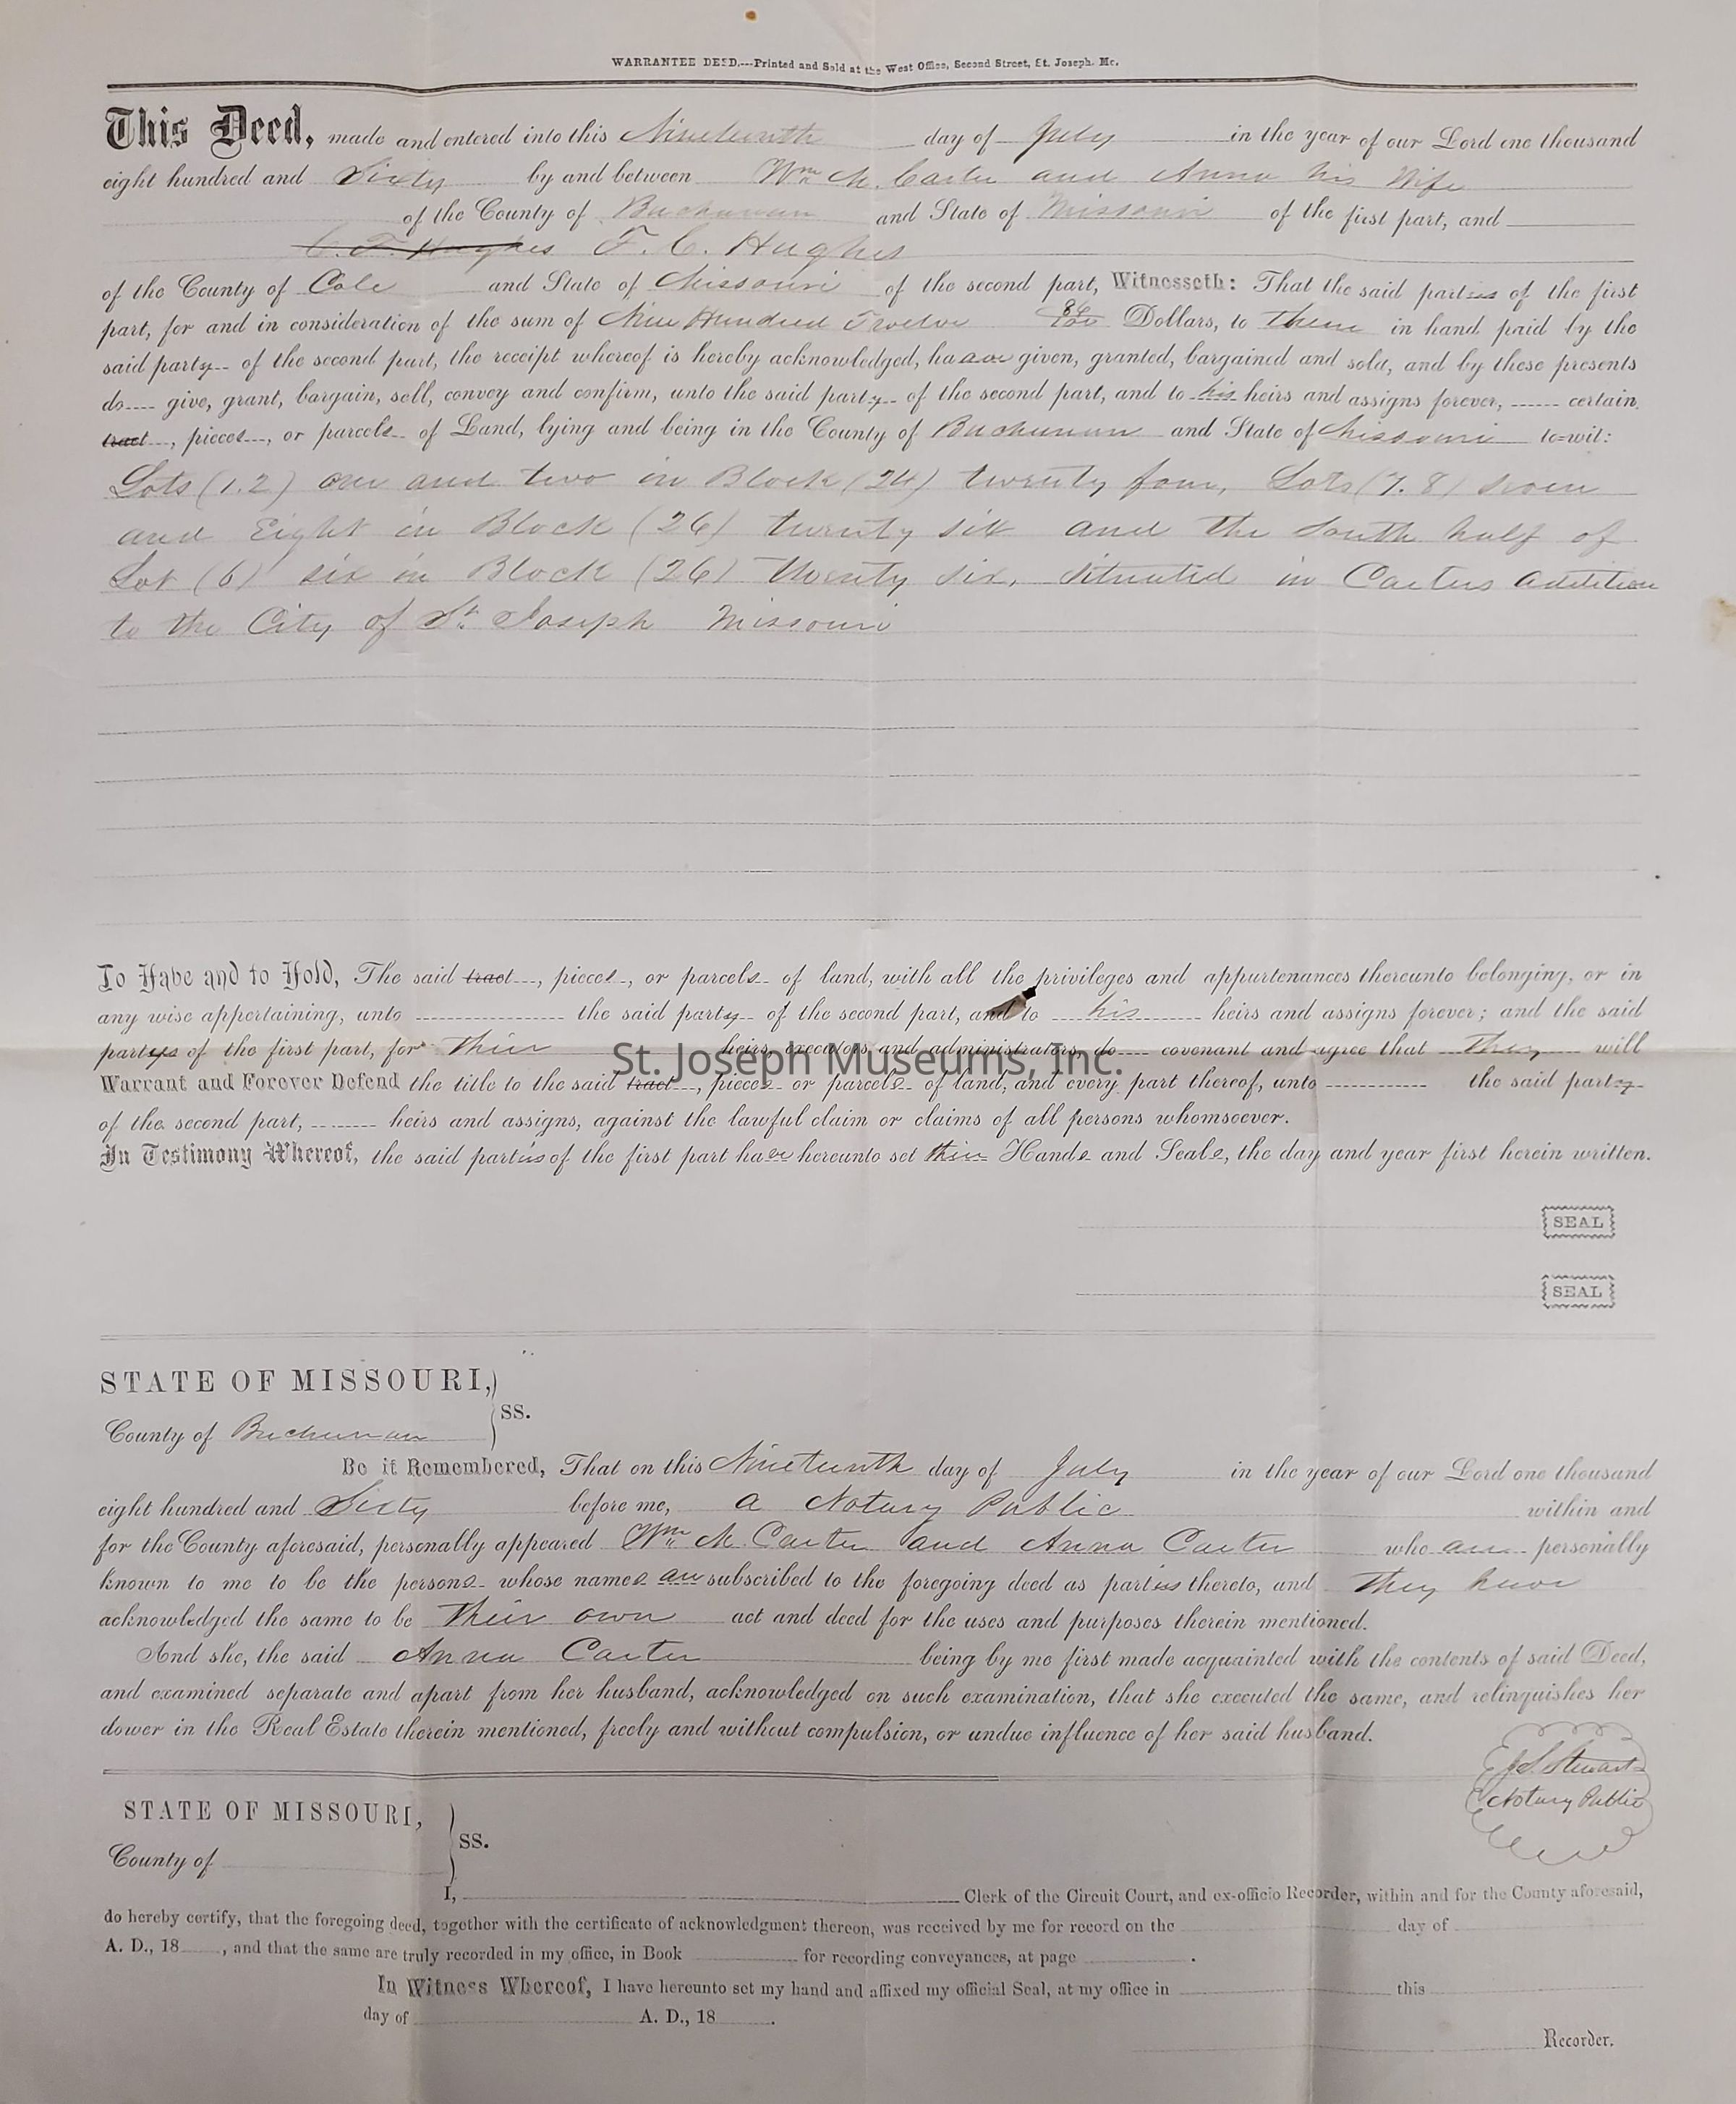 WARRANTEE DEED.---Printed and Sold at the West Office, Second Street, St. Joseph. Mo.
This Deed, made and entered into this Nineteenth day of July in the year of our Lord one thousand
eight hundred and Sixty by and between Wm M. Carter and Anna his Wife
of the County of Buchanan and State of Missouri of the first part, and
C. F. Hughes F. C. Hughes
of the County of Cole and State of Missouri of the second part, Witnesseth: That the said parties of the first
part, for and in consideration of the sum of Nine Hundred Twelve 86/100 Dollars, to them in hand paid by the
said party of the second part, the receipt whereof is hereby acknowledged, have given, granted, bargained and sold, and by these presents
do give, grant, bargain, sell, convey and confirm, unto the said party of the second part, and to his heirs and assigns forever, certain
tract, pieces, or parcels of Land, lying and being in the County of Buchanan and State of Missouri to=wit:
Lots (1.2) one and two in Block (24) twenty four, Lots (7.8) seven
and Eight in Block (26) twenty six and the South half of
Lot (6) six in Block (26) Twenty six, situated in Carters addition
to the City of St. Joseph Missouri
To Have and to Hold, The said tract, pieces, or parcels of land, with all the privileges and appurtenances thereunto belonging, or in
any wise appertaining, unto the said party of the second part, and to his heirs and assigns forever; and the said
parties of the first part, for their heirs, executors and administrators, do covenant and agree that They will
St. Joseph Museums, Inc.
Warrant and Forever Defend the title to the said tract, pieces or parcels of land, and every part thereof, unto the said party
of the second part, heirs and assigns, against the lawful claim or claims of all persons whomsoever.
In Testimony Whereof, the said parties of the first part have hereunto set their Hands and Seals, the day and year first herein written.
SEAL
SEAL
STATE OF MISSOURI,
SS.
County of Buchanan
Be it Remembered, That on this Nineteenth day of July in the year of our Lord one thousand
eight hundred and Sixty before me, a Notary Public within and
for the County aforesaid, personally appeared Wm M. Carter and Anna Carter who are personally
known to me to be the persons whose names are subscribed to the foregoing deed as parties thereto, and They have
acknowledged the same to be Their own act and deed for the uses and purposes therein mentioned.
And she, the said Anna Carter being by me first made acquainted with the contents of said Deed,
and examined separate and apart from her husband, acknowledged on such examination, that she executed the same, and relinquishes her
dower in the Real Estate therein mentioned, freely and without compulsion, or undue influence of her said husband.
Stewart
Notary Public
STATE OF MISSOURI,
SS.
County of
I, Clerk of the Circuit Court, and ex-officio Recorder, within and for the County aforesaid,
do hereby certify, that the foregoing deed, together with the certificate of acknowledgment thereon, was received by me for record on the day of
A. D., 18 , and that the same are truly recorded in my office, in Book for recording conveyances, at page .
In Witness Whereof, I have hereunto set my hand and affixed my official Seal, at my office in this
day of A. D., 18 .
Recorder.